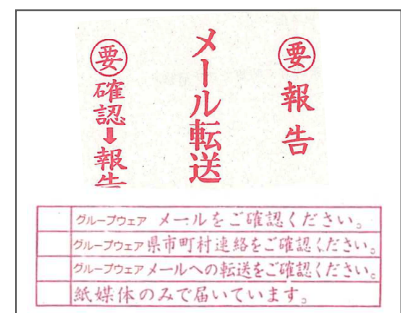 ㊟要報告
メール転送
要確認➡報告
グループウェア メールをご確認ください。
グループウェア 県市町村連絡をご確認ください。
グループウェア メールへの転送をご確認ください。
紙媒体のみで届いています。